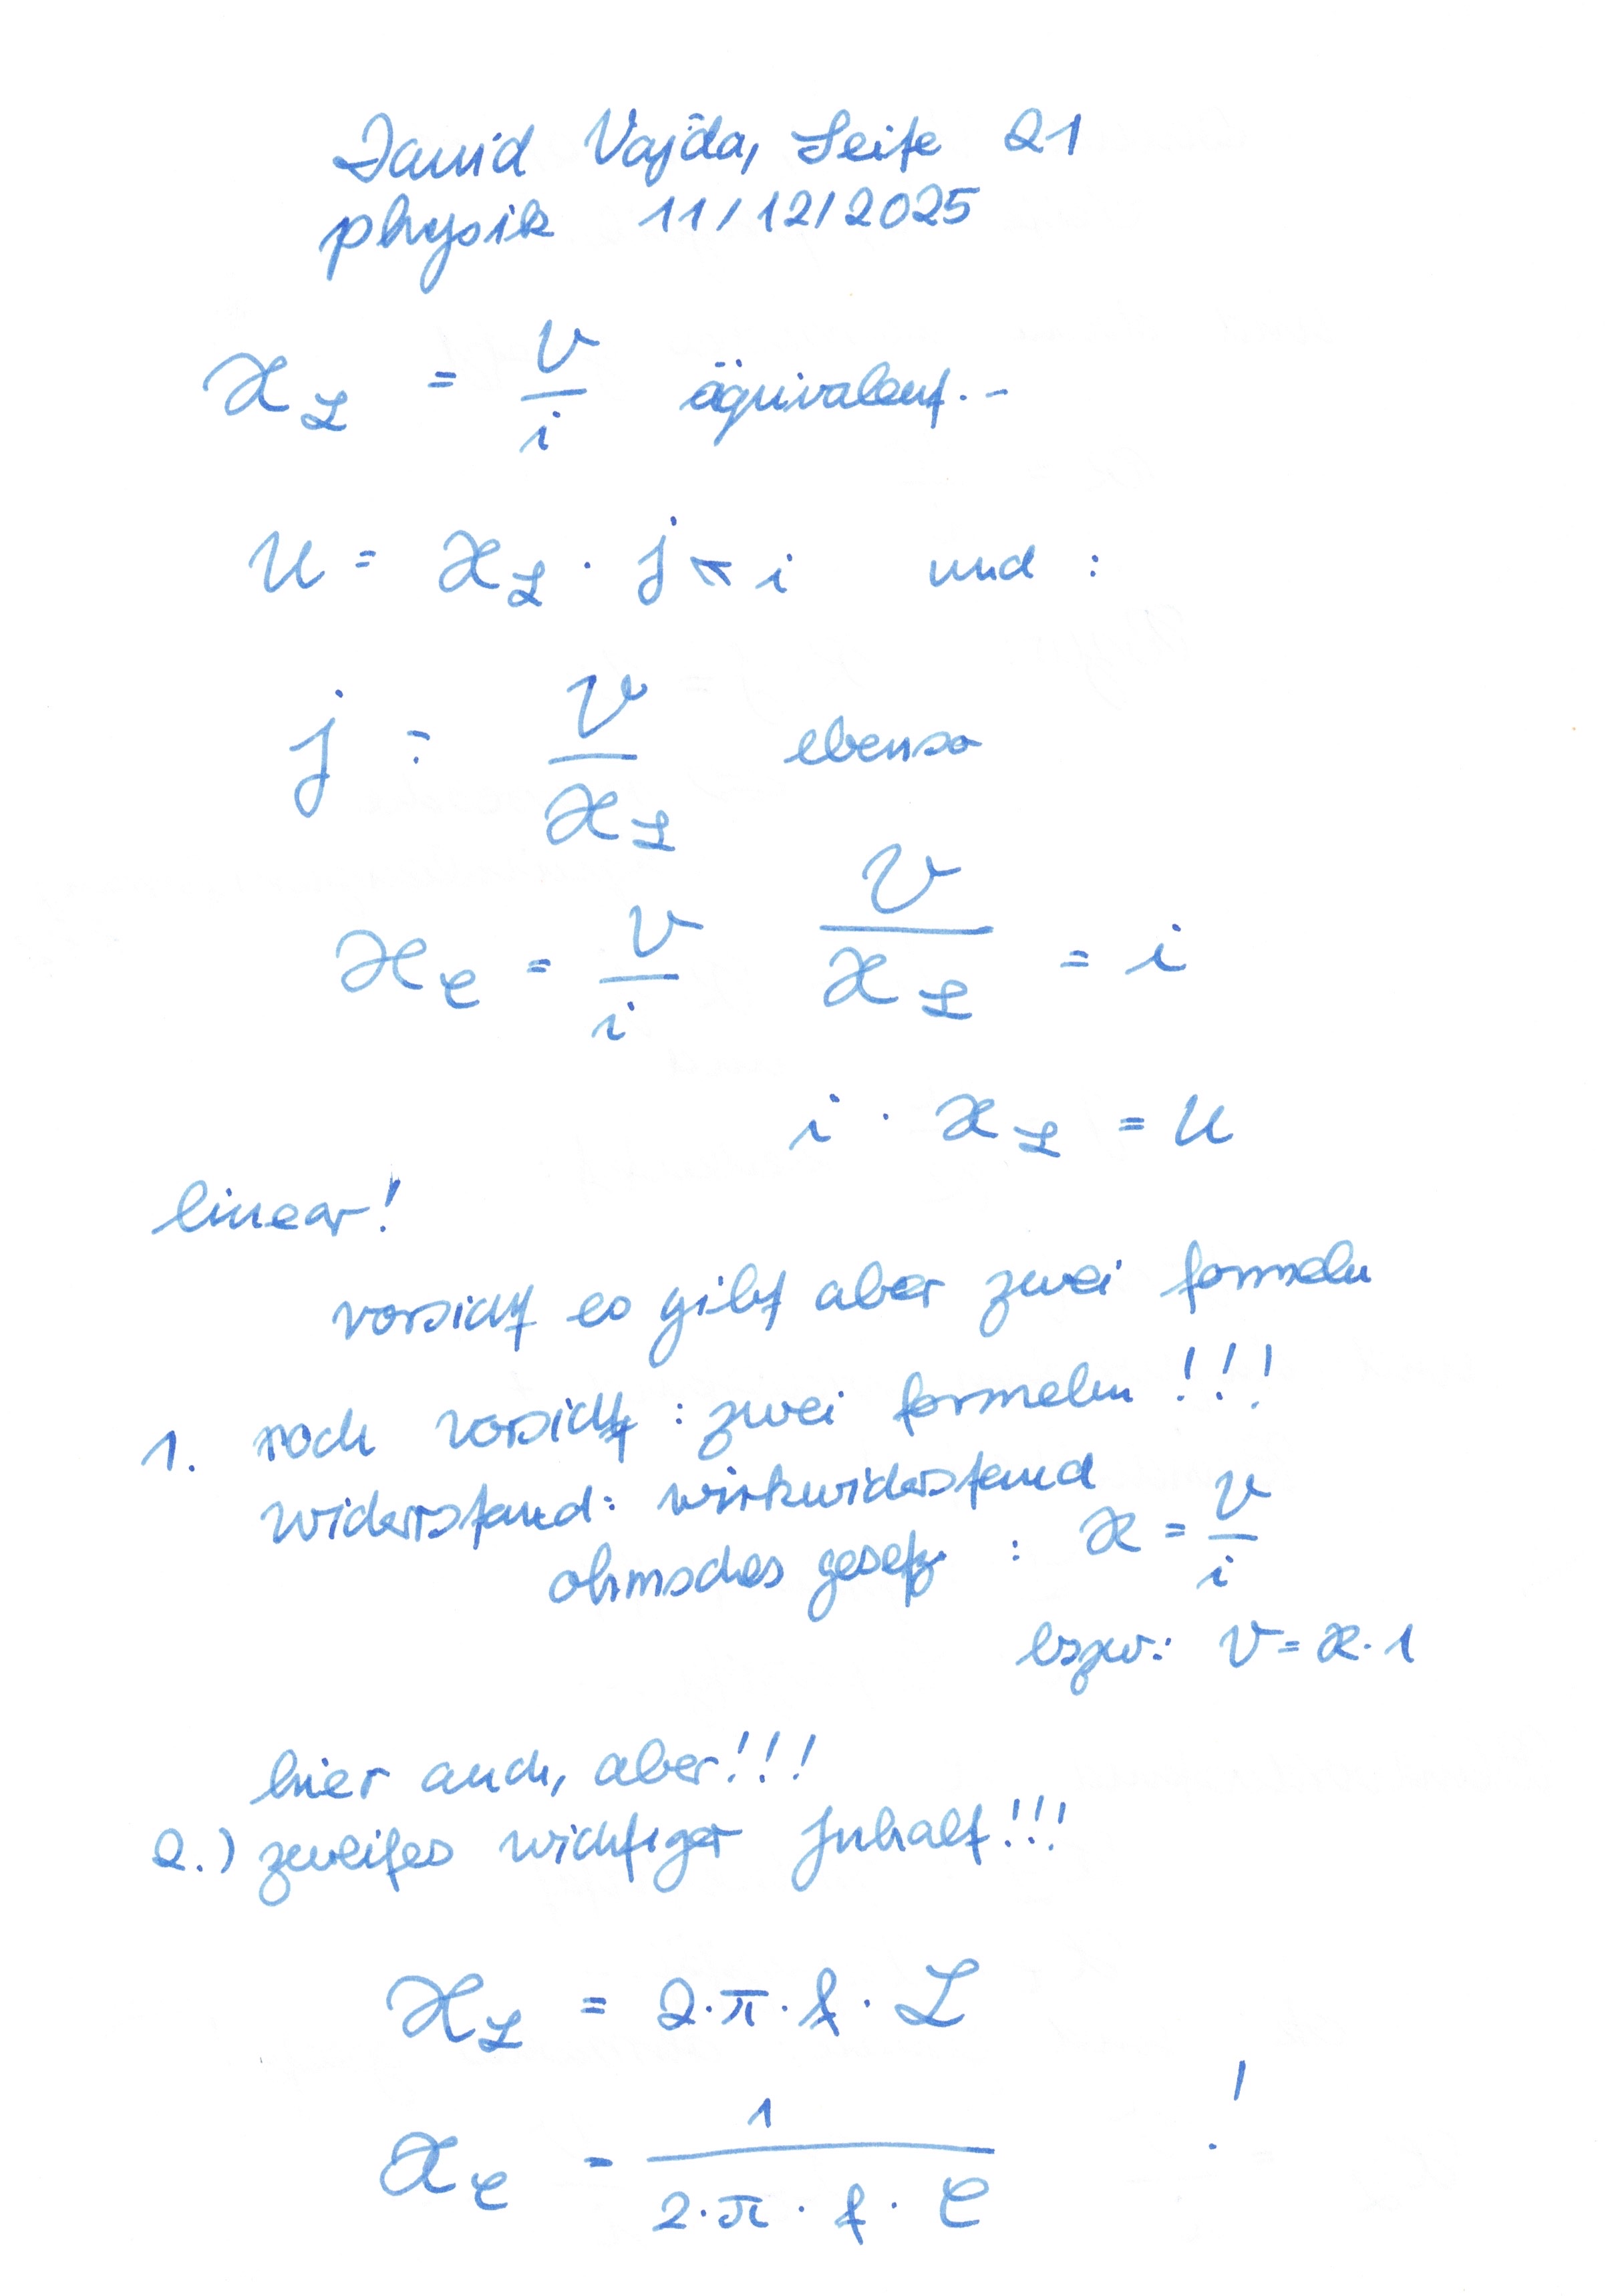 David Vajda, Seite 21
physik 11/12/2025
X_L = U/i äquivalent. -
U = X_L · j ← i und :
j = U/X_L ebenso
X_C = U/i U/X_L = i
i · X_L = U
linear!
vorsicht es gibt aber zwei formeln
1. noch vorsicht : zwei formeln !!!
widerstand: wirkwiderstand
ohmsches gesetz : R = U/i
bzw: U = R · 1
hier auch, aber!!!
2.) zweites wichtiger Inhalt!!!
X_L = 2·π·f·L
X_C = 1/(2·π·f·C) !